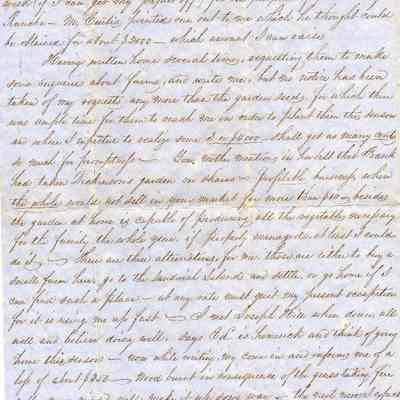 Rancho — Mr. pointed one out to me which he thought could
be for about $3000 — which amount I can raise
Having written home several times, requesting them to make
some enquiries about farms, and write me, but no notice has been
taken of my requests any more than the garden seeds, for which there
was ample time for them to reach me in order to plant them this season
on where I expected to realize some 3 or $4000 shall get as many cents
so much for promptness — Geo. mother mentions in her bill that Frank
had taken Dickinson's garden on shares — profitable business when
the whole would not sell in your market for more than $ besides
the garden at home is capable of producing all the vegetables necessary
for the family the whole year if properly managed, at least I could
do it, — There are three alternatives for me. Those are either to buy a
small farm here, go to the Sandwich Islands and settle, or go home if I
can find such a place — at any rate must quit my present occupation
for it is using me up fast — I met Joseph Hill when down, all
well and believe doing well. says Ed. is homesick and think of going
home this season — now while writing, my comes in and informs me of a
loss of about $350 — Wood burnt in consequence of the grass taking fire